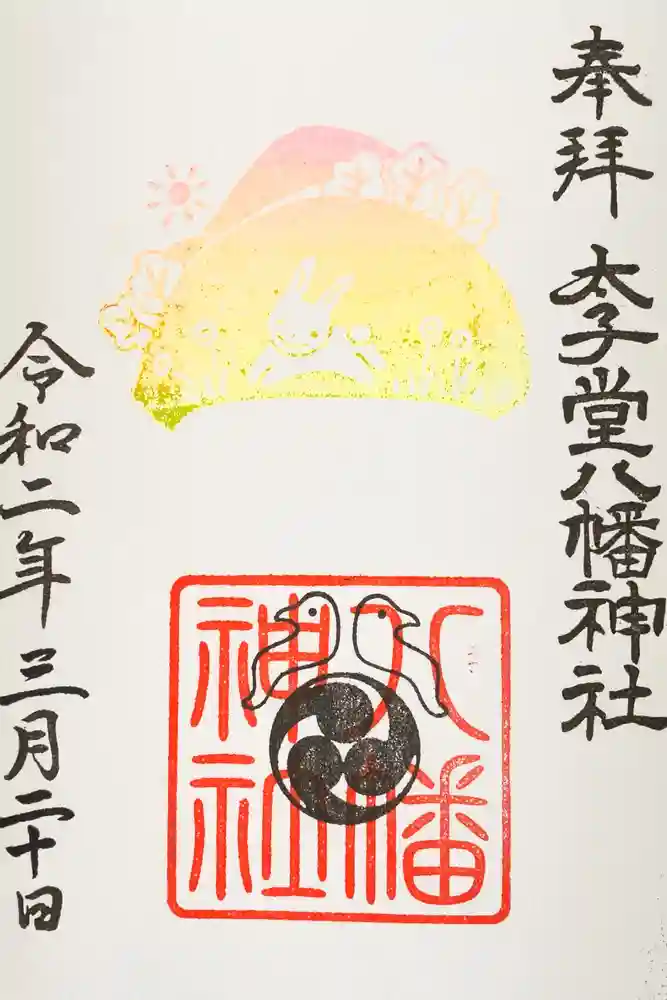 奉拝
太子堂八幡神社
八幡
神社
令和二年三月二十日